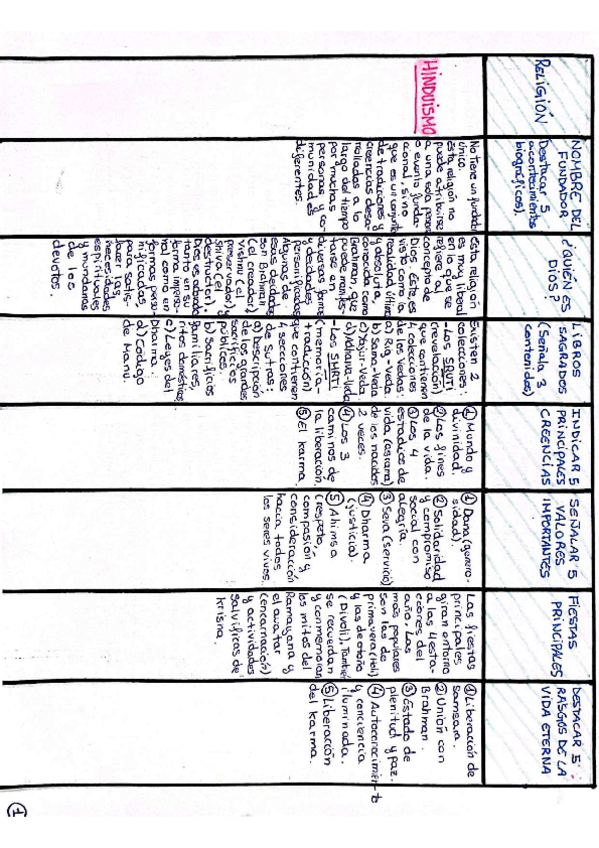 RELIGIÓN
NOMBRE DEL
FUNDADOR
(Destacar 5
acontecimientos
biográficos).
¿QUIÉN ES
DIOS?
LIBROS
SAGRADOS
(Señala 3
contenidos)
INDICAR 5
PRINCIPALES
CREENCIAS
SEÑALAR 5
VALORES
IMPORTANTES
FIESTAS
PRINCIPALES
DESTACAR 5
RASGOS DE LA
VIDA ETERNA
HINDUISMO
No tiene un fundador
único.
Esta religión no
puede atribuirse
a una sola persona
o evento funda-
cional, sino
que es un conjunto
de tradiciones y
creencias desa-
rrolladas a lo
largo del tiempo
por muchas
personas y co-
munidades
diferentes.
Esta religión
es muy liberal
en lo que se
refiere al
concepto de
Dios. Éste, es
visto como la
realidad última
y absoluta,
conocida como
Brahman, que
puede manifes-
tarse en
diversas formas
y deidades
personificadas.
Algunas de
esas deidades
son Brahman
(el creador),
Vishnu (el
preservador) y
Shiva (el
destructor).
Dios es adorado
tanto en su
forma imperso-
nal como en
formas perso-
nificadas
para satis-
facer las
necesidades
espirituales
y mundanas
de los
devotos.
Existen 2
colecciones:
- Los SRUTI
(revelación)
que contienen
4 colecciones
de los Vedas:
a) Rig-Veda
b) Sama-Veda
c) Yajur-Veda
d) Atharva-Veda
- Los SMRTI
(memoria -
traducción)
que contienen
4 secciones
de sutras:
a) Descripción
de los grandes
sacrificios
públicos.
b) Sacrificios
familiares,
ritos domésticos
c) Leyes del
Dharma.
d) Código
de Manu.
① Mundo y
divinidad.
② Los fines
de la vida.
③ Los 4
estadios de
vida (asrama)
de los nacidos
2 veces.
④ Los 3
caminos de
la liberación.
⑤ El karma.
① Dana (genero-
sidad).
② Solidaridad
y compromiso
social con
alegría.
③ Seva (servicio)
④ Dharma
(justicia).
⑤ Ahimsa
(respeto,
compasión y
consideración
hacia todos
los seres vivos.
Las fiestas
principales
giran entorno
a las 4 esta-
ciones del
año. Las
más populares
son las de
primavera (Holi)
y las de otoño
(Divoli). También
se recuerdan
y conmemoran
los mitos del
Ramayana y
el avatar
(encarnación)
y actividades
salvíficas de
Krisna.
① Liberación de
samsara.
② Unión con
Brahman.
③ Estado de
plenitud y paz.
④ Autoconocimiento
y conciencia
iluminada.
⑤ Liberación
del karma.
①